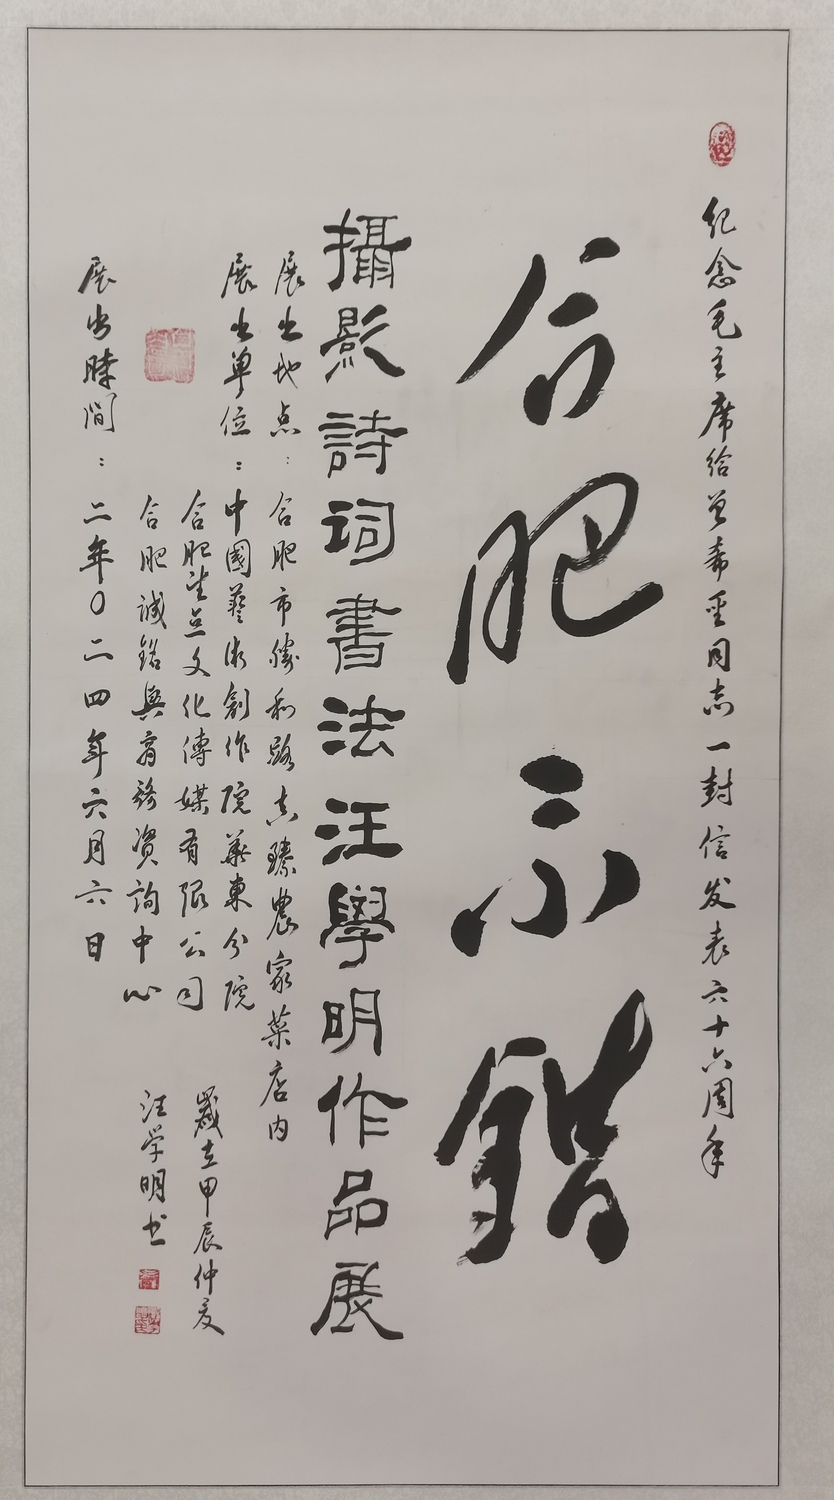 纪念毛主席给曾希圣同志一封信发表六十六周年
合肥不錯
攝影詩词書法汪學明作品展
展出地点：合肥市勝利路臻農家菜店内
展出单位：中國藝術創作院華東分院
合肥文化傳媒有限公司
合肥诚銘興商務资詢中心
展出時间：二年〇二四年六月六日
歲在甲辰仲夏
汪学明书